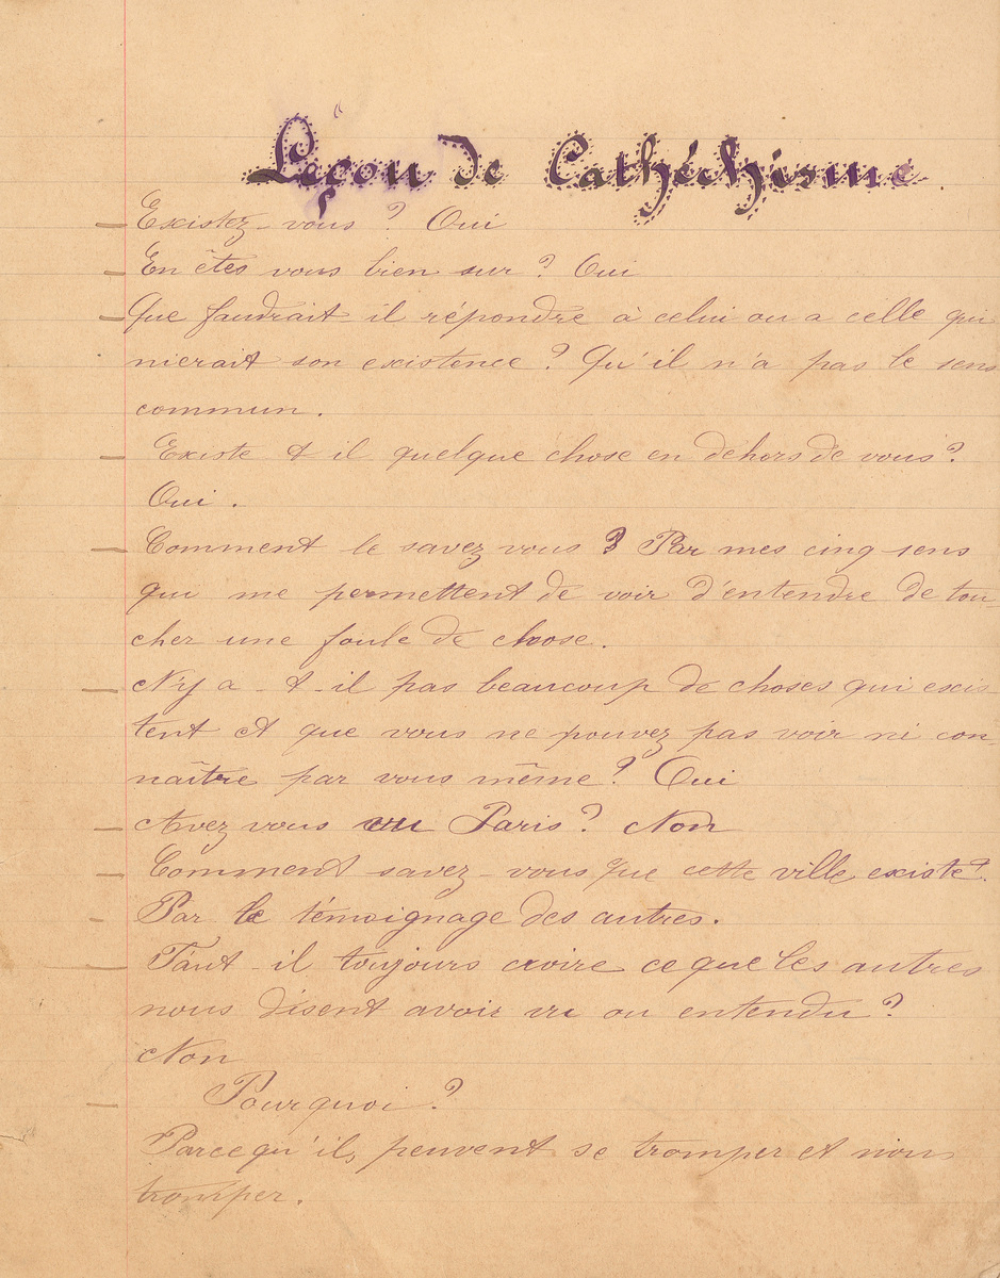 Leçon de Cathéchisme.
— Existez-vous ? Oui
— En êtes vous bien sur ? Oui
— Que faudrait il répondre à celui ou a celle qui
nierait son existence ? Qu'il n'a pas le sens
commun.
— Existe t il quelque chose en dehors de vous ?
Oui.
— Comment le savez vous ? Par mes cinq sens
qui me permettent de voir d'entendre de tou-
cher une foule de choose.
— N'y a-t-il pas beaucoup de choses qui exis
tent et que vous ne pouvez pas voir ni con-
naître par vous même ? Oui
— Avez vous vu Paris ? Non
— Comment savez-vous que cette ville existe ?
- Par le témoignage des autres.
— Faut-il toujours croire ce que les autres
nous disent avoir vu ou entendu ?
Non
— Pourquoi ?
Parcequ'ils peuvent se tromper et nous
tromper.